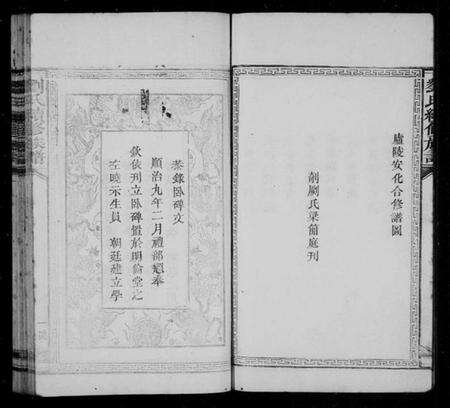 廬陵安化合修譜圖
劊劂氏梁簡庭刊
恭錄臥碑文
順治九年二月禮部題奉
欽依刊立臥碑置於明倫堂之
左曉示生員 朝廷建立學